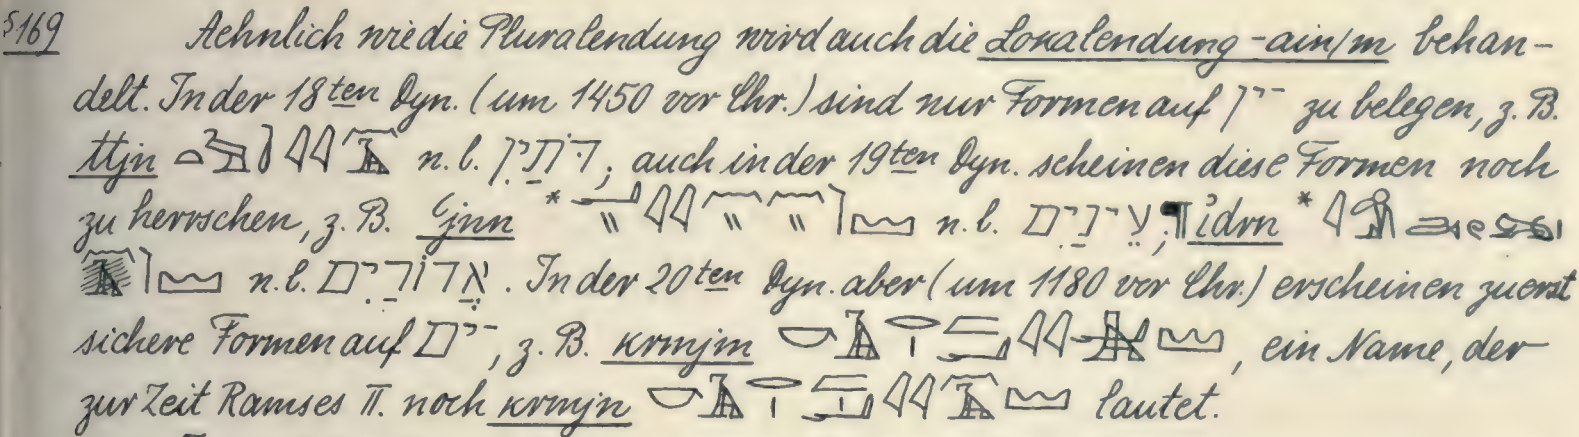 §169 Aehnlich wie die Pluralendung wird auch die Lokalendung -ain/m behan-
delt. In der 18ten Dyn. (um 1450 vor Chr.) sind nur Formen auf ־ַיִן zu belegen, z. B.
ttjn n. l. דֹּתַיִן; auch in der 19ten Dyn. scheinen diese Formen noch
zu herrschen, z. B. ꜥjnn * n. l. עֵינַיִם; idrn *
n. l. אֲדוֹרַיִם. In der 20ten Dyn. aber (um 1180 vor Chr.) erscheinen zuerst
sichere Formen auf ־ַיִם, z. B. krmjm , ein Name, der
zur Zeit Ramses II. noch krmjn lautet.